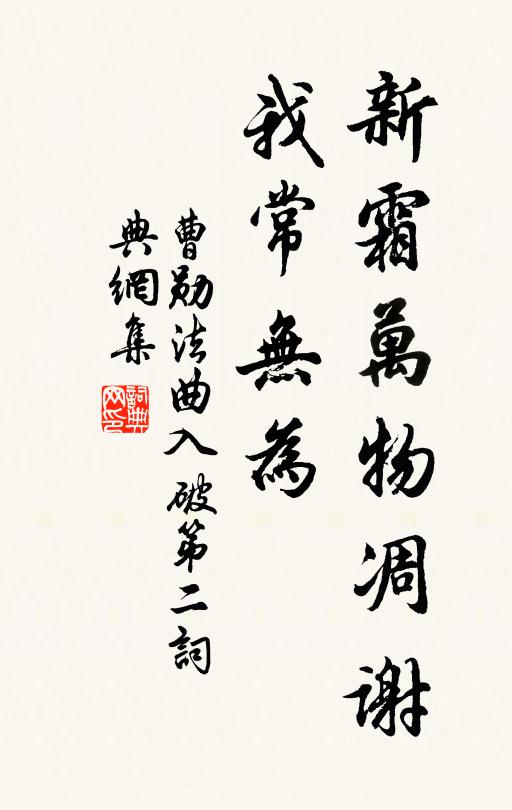 新霜萬物凋谢
我常無為
曹勋法曲入破第二詞
典網集
詞典网印